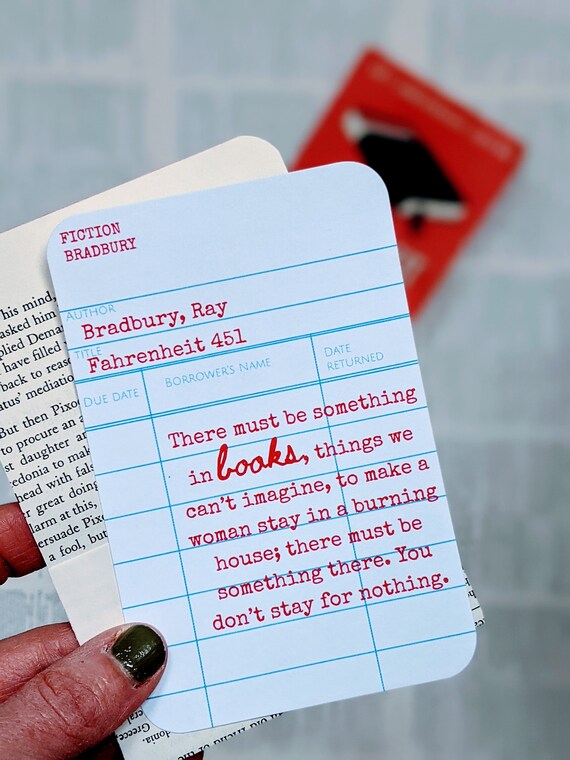 FICTION
BRADBURY
AUTHOR
Bradbury, Ray
TITLE
Fahrenheit 451
DUE DATE
BORROWER'S NAME
DATE
RETURNED
There must be something
in books, things we
can't imagine, to make a
woman stay in a burning
house; there must be
something there. You
don't stay for nothing.
his mind,
asked him
plied Dema
have filled
back to reas
atus' mediatio
But then Pixo
to procure an a
st daughter an
edonia to mak
head with fals
r great doing
larm at this,
ersuade Pixo
a fool, but